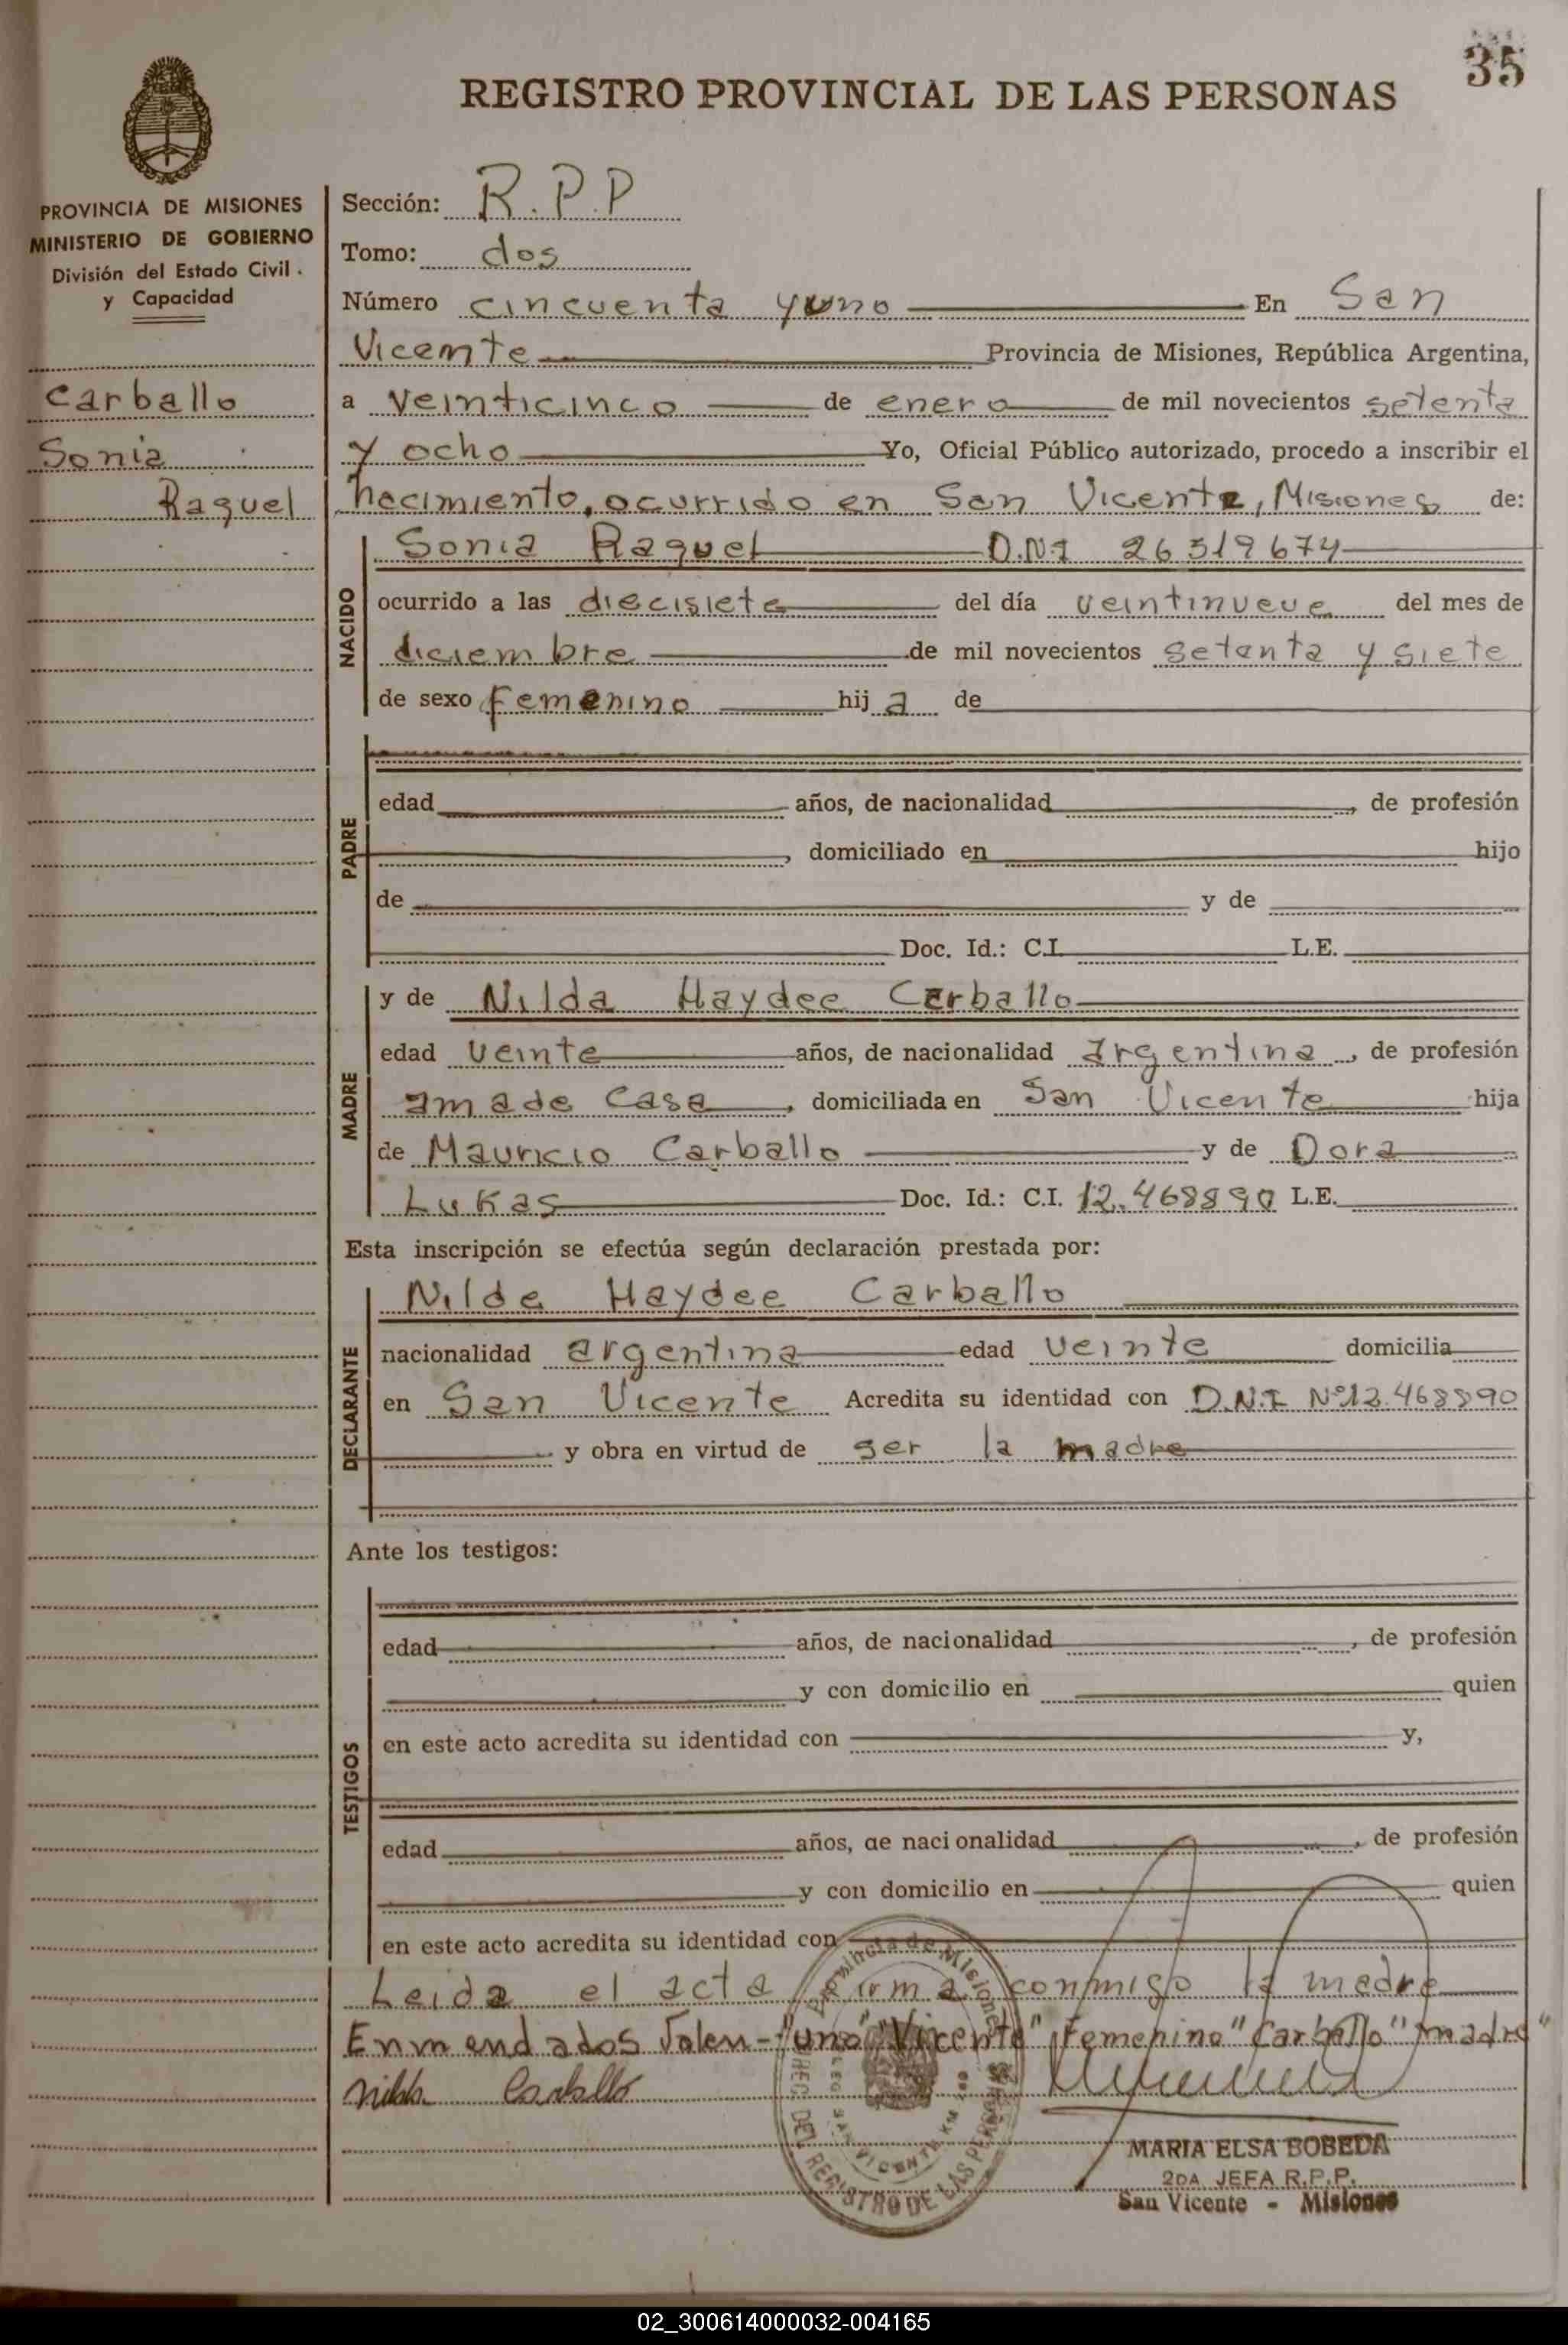 35
REGISTRO PROVINCIAL DE LAS PERSONAS
PROVINCIA DE MISIONES
MINISTERIO DE GOBIERNO
División del Estado Civil.
y Capacidad
Carballo
Sonia
Raquel
Sección: R.P.P
Tomo: dos
Número cincuenta y uno En San
Vicente Provincia de Misiones, República Argentina,
a veinticinco de enero de mil novecientos setenta
y ocho Yo, Oficial Público autorizado, procedo a inscribir el
nacimiento, ocurrido en San Vicente, Misiones de:
NACIDO
Sonia Raquel D.N.I 26319674
ocurrido a las diecisiete del día veintinueve del mes de
diciembre de mil novecientos setenta y siete
de sexo femenino hij a de
PADRE
edad años, de nacionalidad , de profesión
, domiciliado en hijo
de y de
Doc. Id.: C.I. L.E.
MADRE
y de Nilda Haydee Carballo
edad veinte años, de nacionalidad argentina, de profesión
ama de casa, domiciliada en San Vicente hija
de Mauricio Carballo y de Dora
Lukas Doc. Id.: C.I. 12.468890 L.E.
Esta inscripción se efectúa según declaración prestada por:
DECLARANTE
Nilda Haydee Carballo
nacionalidad argentina edad veinte domicilia
en San Vicente Acredita su identidad con D.N.I Nº12.468890
y obra en virtud de ser la madre
Ante los testigos:
TESTIGOS
edad años, de nacionalidad , de profesión
y con domicilio en quien
en este acto acredita su identidad con y,
edad años, de nacionalidad , de profesión
y con domicilio en quien
en este acto acredita su identidad con
Leida el acta firma conmigo la madre
Enmendados Valen-"uno" "Vicente" "Femenino" "Carballo" "madre"
Nilda Carballo
Provincia de Misiones
DEL REGISTRO DE LAS PERSONAS
MARIA ELSA BOBEDA
2DA JEFA R.P.P.
San Vicente - Misiones
02_300614000032-004165